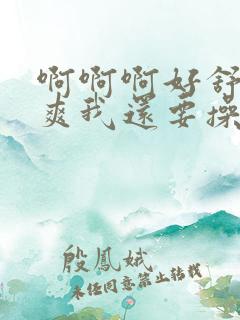 啊啊啊好舒
爽我還要操
殷鳳娥
未任同意禁止转载